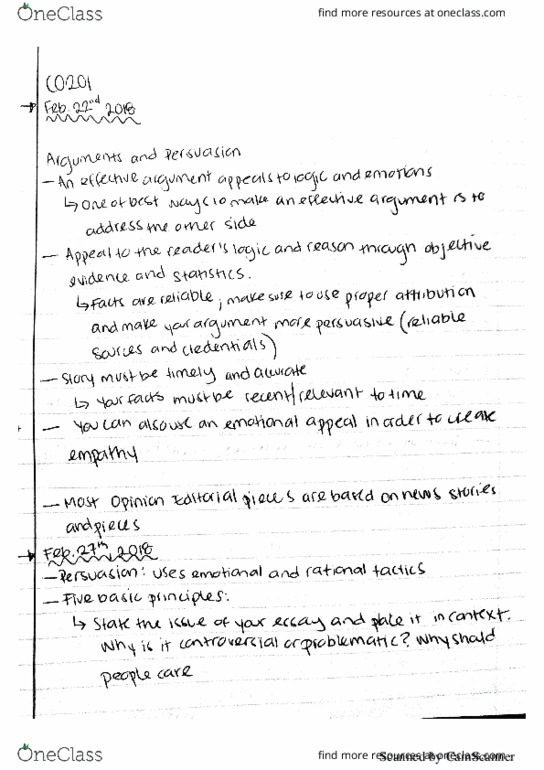 OneClass
find more resources at oneclass.com
CO201
Feb. 22nd 2018
Arguments and Persuasion
— An effective argument appeals to logic and emotions
↳ One of best ways to make an effective argument is to
address the other side
— Appeal to the reader's logic and reason through objective
evidence and statistics.
↳ Facts are reliable; make sure to use proper attribution
and make your argument more persuasive (reliable
sources and credentials)
— Story must be timely and accurate
↳ Your facts must be recent/relevant to time
— You can also use an emotional appeal in order to create
empathy
— Most Opinion Editorial pieces are based on news stories
and pieces
Feb. 27th, 2018
— Persuasion: uses emotional and rational tactics
— Five basic principles:
↳ State the issue of your essay and place it in context.
Why is it controversial or problematic? Why should
people care
OneClass
find more resources at oneclass.com
Scanned by CamScanner